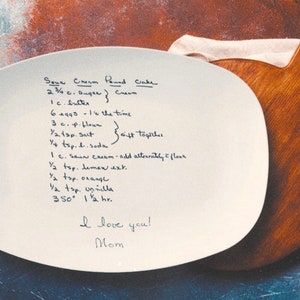 Sour Cream Pound Cake
2 3/4 c. sugar } cream
1 c. butter
6 eggs - 1 x the time
3 c. p. flour
1/2 tsp. salt } sift together
1/4 tsp. b. soda
1 c. sour cream - add alternately c flour
1/2 tsp. lemon ext.
1/2 tsp. orange
1/2 tsp. vanilla
350° 1 1/2 hr.
I love you!
Mom